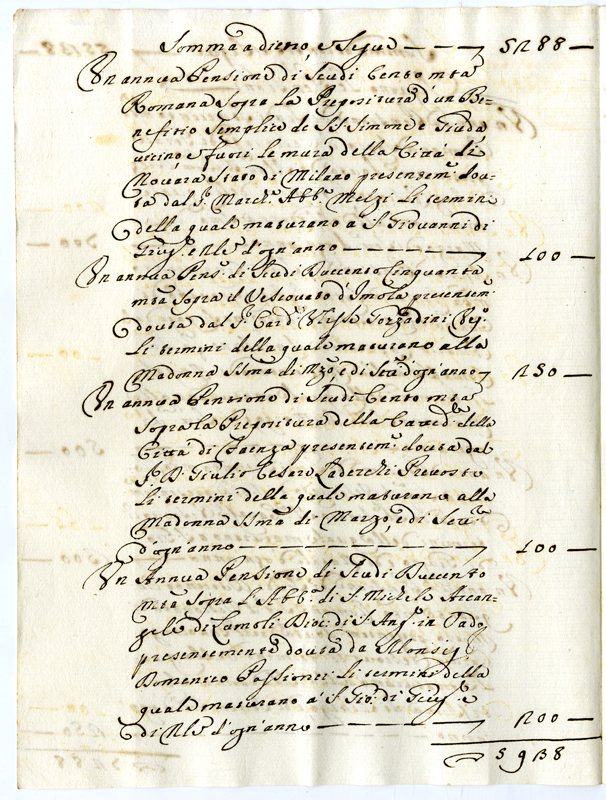 Somma a dietro, e Segue — — — 5288 —
Un annua Pensione di Scudi Cento mta
Romana Sopra la Prepositura d'un Be=
nefitio Semplice de SS Simone e Giuda
vicino e fuori le mura della Città di
Novara Stato di Milano presentem.e dou=
ta dal S.r March.e Abb.e Melzi li termini
della quale maturano a S. Giovanni di
Giug.o e Nle d'ogn'anno — — — — 100 —
Un annua Pens.e di Scudi Duecento Cinquanta
mta Sopra il Vescovato d'Imola presentem.e
douta dal S.r Card.e Ulisse Gozzadini Ves.o
li termini della quale maturano alla
Madonna SSma di Mzo, e di Sere d'ogn'anno 250 —
Un annua Pensione di Scudi Cento mta
Sopra la Prepositura della Catted.le della
Città di Faenza presentem.e douta dal
S.r D. Giulio Cesare Laderchi Prevosto
li termini della quale maturano alla
Madonna SSma di Marzo, e di Sere
d'ogn'anno — — — — — — — 100 —
Un Annua Pensione di Scudi Duecento
mta Sopra l'Abb.a di S. Michele Arcan=
gelo di Lamoli Dioc: di S. Ang.o in Vado
presentemente douta da Monsig.r
Domenico Passionei li termini della
quale maturano a S. Gio: di Giug.o e
di Nle d'ogn'anno — — — — — 200 —
5938